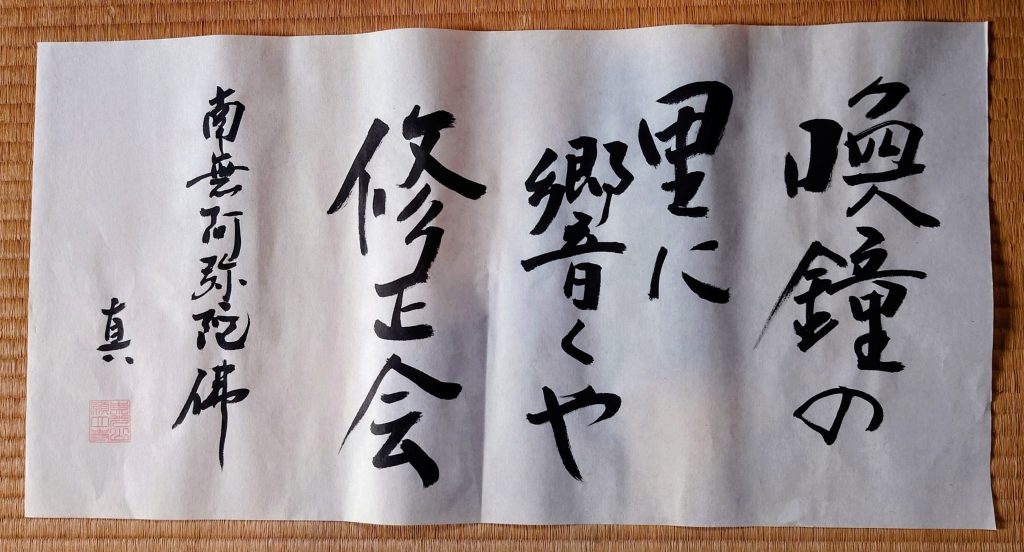 喚鐘の
里に
響くや
修正会
南無阿弥陀佛
真